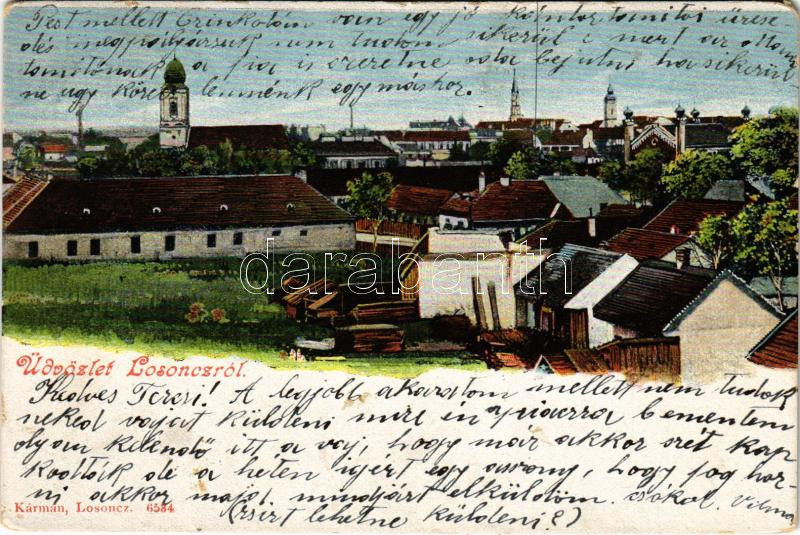 Pest mellett Czinkotán van egy jó kántortanitói ürese
dés megpályázzuk nem tudom sikerül e mert az ottani
tanitónak a fia is szeretne oda bejutni ha sikerül
ne úgy közel lennénk egymáshoz.
darabanth
Üdvözlet Losonczról.
Kedves Terczi! A legjobb akaratom mellett nem tudok
neked vajat küldeni mire én a piaczra bementem
olyan kelendő itt a vaj, hogy már akkor szét kap
kodták de a héten igért egy asszony, hogy fog hoz
ni akkor majd mindjárt elküldöm. csókol Vilma
(zsirt lehetne küldeni?)
Kármán, Losoncz. 6534